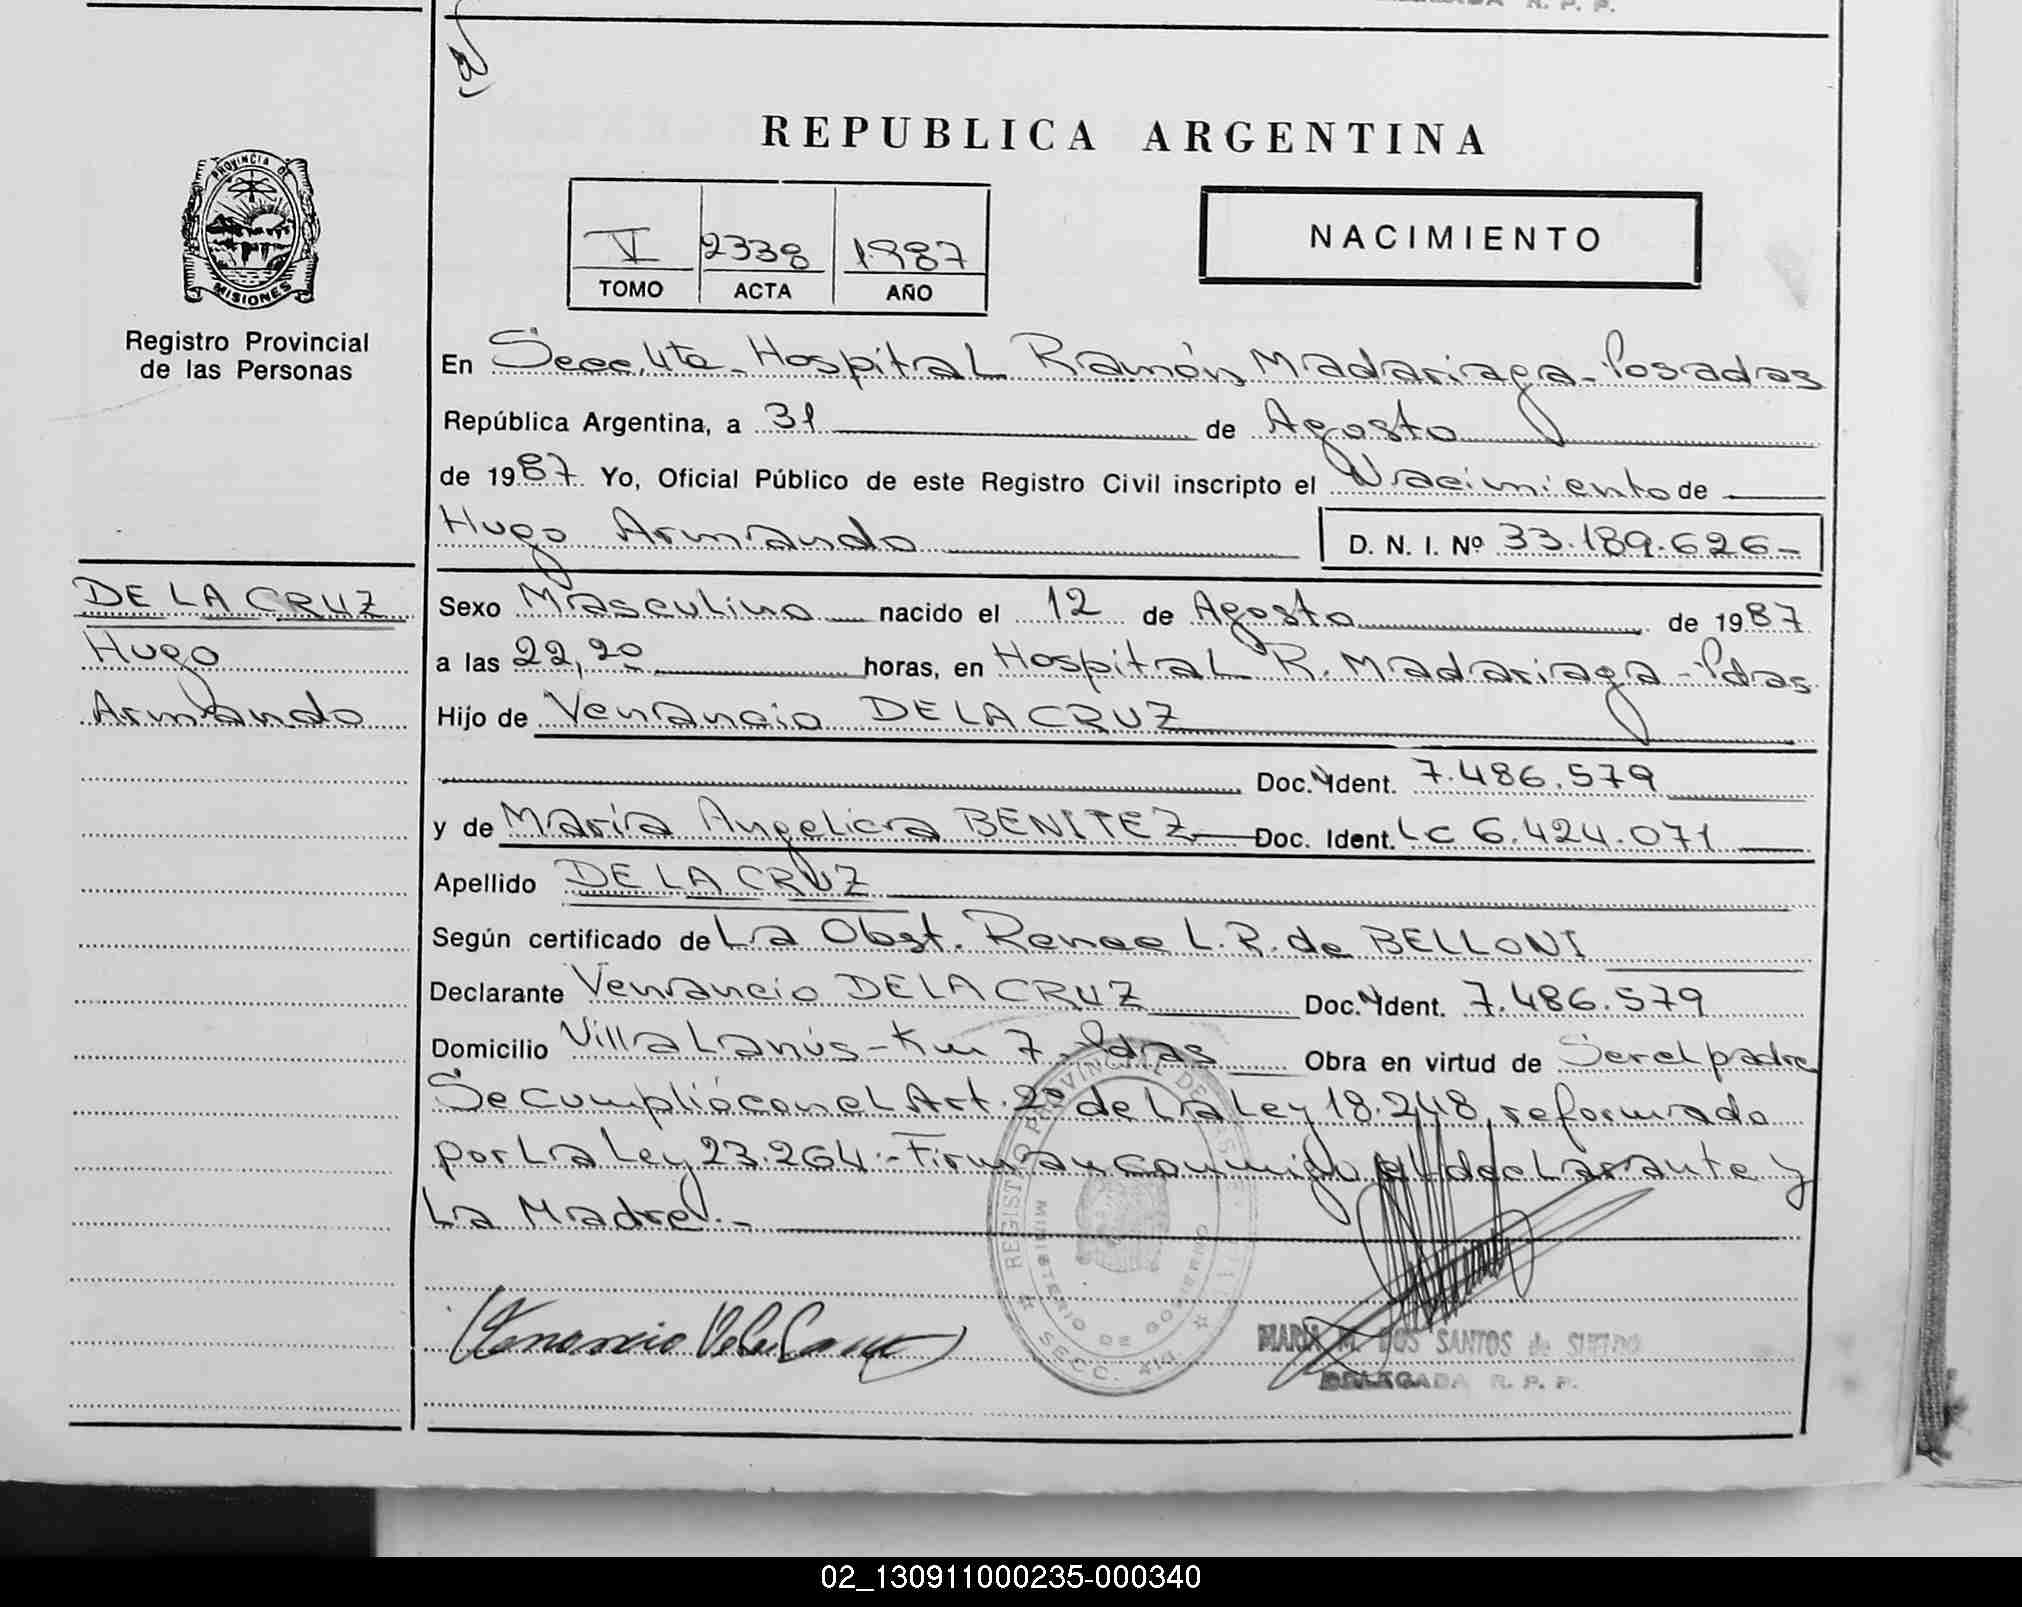 R. P. P.
REPUBLICA ARGENTINA
PROVINCIA DE
MISIONES
Registro Provincial
de las Personas
V 2338 1987
TOMO ACTA AÑO
NACIMIENTO
En Secc. 4ta - Hospital Ramón Madariaga - Posadas
República Argentina, a 31 de Agosto
de 1987 Yo, Oficial Público de este Registro Civil inscripto el Nacimiento de
Hugo Armando D. N. I. Nº 33.189.626-
DE LA CRUZ
Hugo
Armando
Sexo Masculino nacido el 12 de Agosto de 1987
a las 22,20 horas, en Hospital R. Madariaga - Pdas
Hijo de Venancio DE LA CRUZ
Doc. Ident. 7.486.579
y de María Angelica BENITEZ Doc. Ident. LC 6.424.071
Apellido DE LA CRUZ
Según certificado de La Obst. Renee L. R. de BELLONI
Declarante Venancio DE LA CRUZ Doc. Ident. 7.486.579
Domicilio Villa Lanús - Km 7 - Pdas Obra en virtud de Ser el padre
Se cumplió con el Art. 2º de la Ley 18.248, reformado
por la Ley 23.264.- Firman conmigo el declarante y
La Madre.-
REGISTRO PROVINCIAL DE LAS
MINISTERIO DE GOBIERNO
SECC. 4ta
Venancio De la Cruz
MARIA M. DOS SANTOS de
DELEGADA R. P. P.
02_130911000235-000340